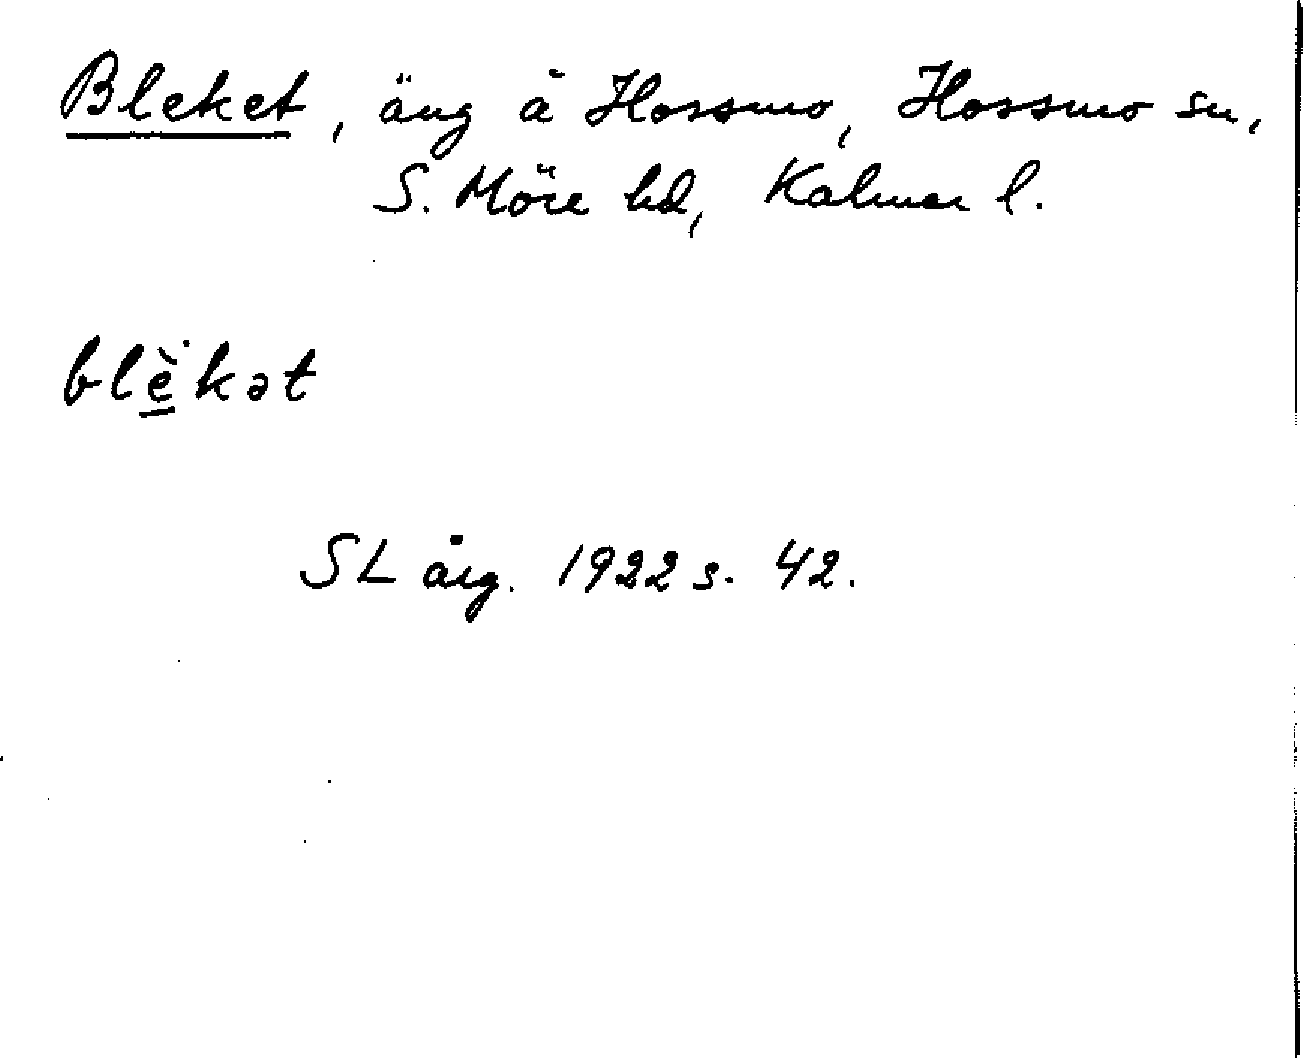 Bleket, äng å Hossmo, Hossmo sn,
S. Möre hd, Kalmar l.
blè̱kət
SL årg. 1922 s. 42.